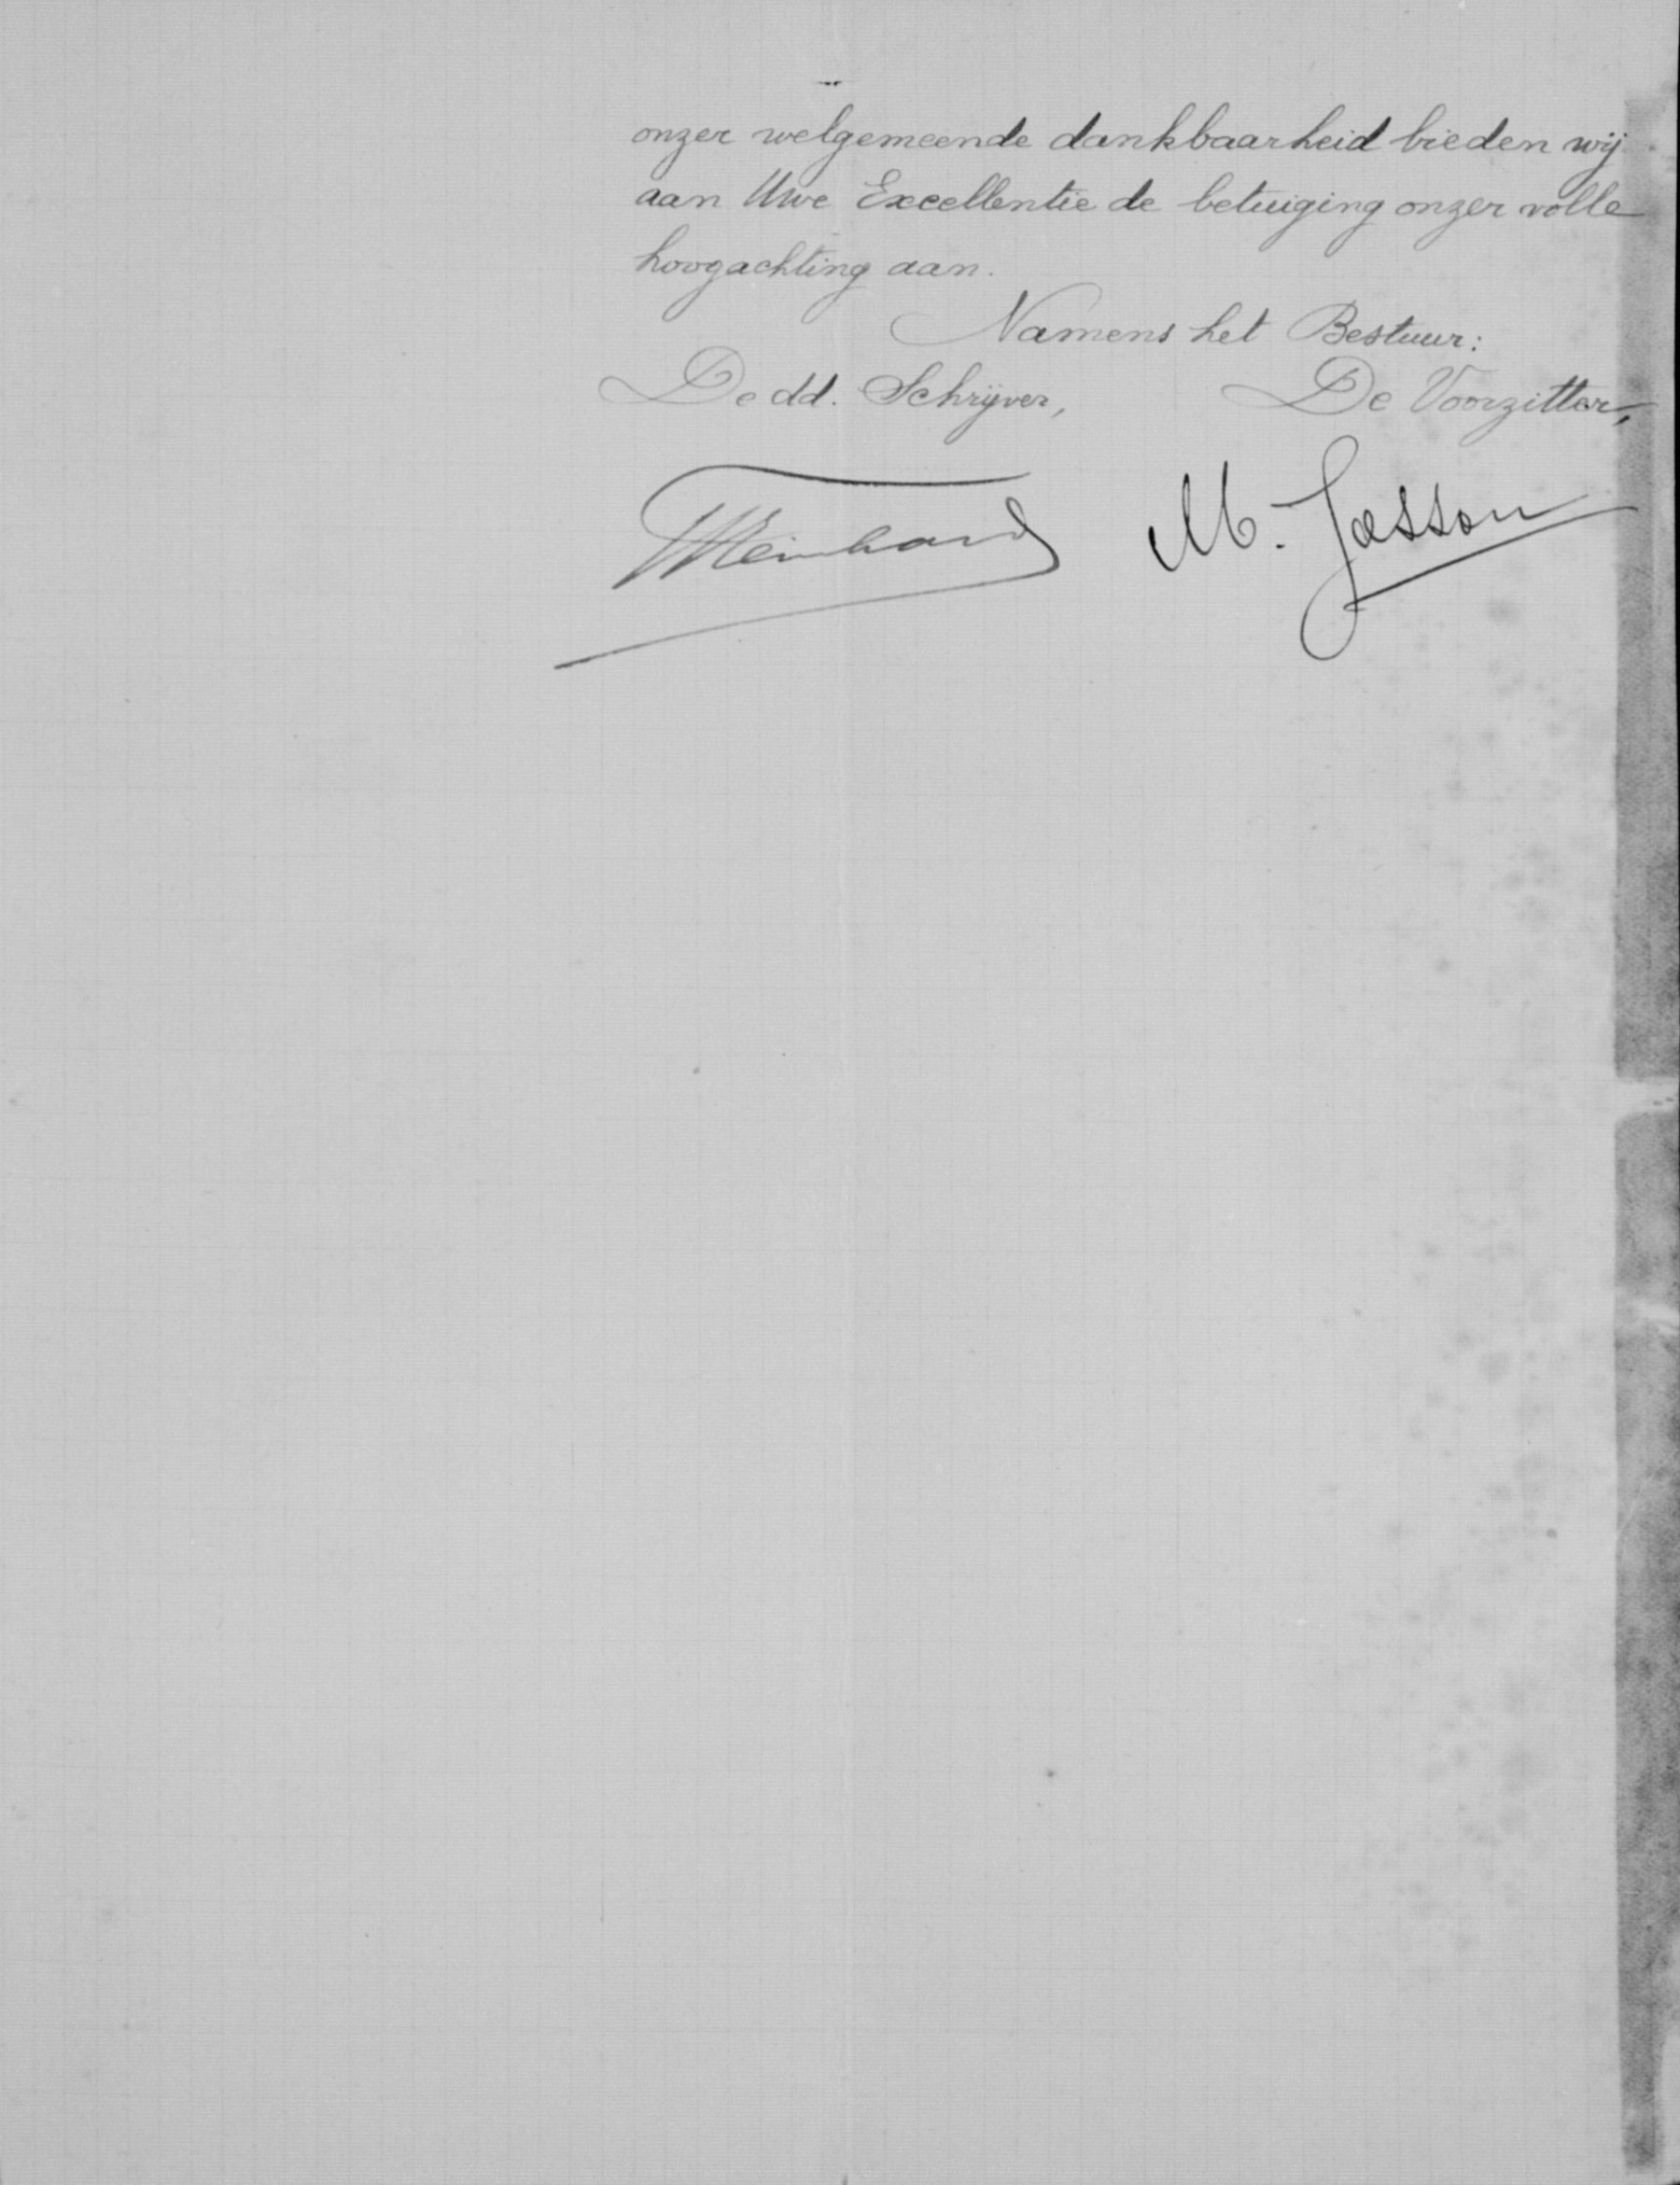 onzer welgemeende dankbaarheid bieden wij
aan Uwe Excellentie de betuiging onzer volle
hoogachting aan.
Namens het Bestuur:
De dd. Schrijver, De Voorzitter,
M. Josson